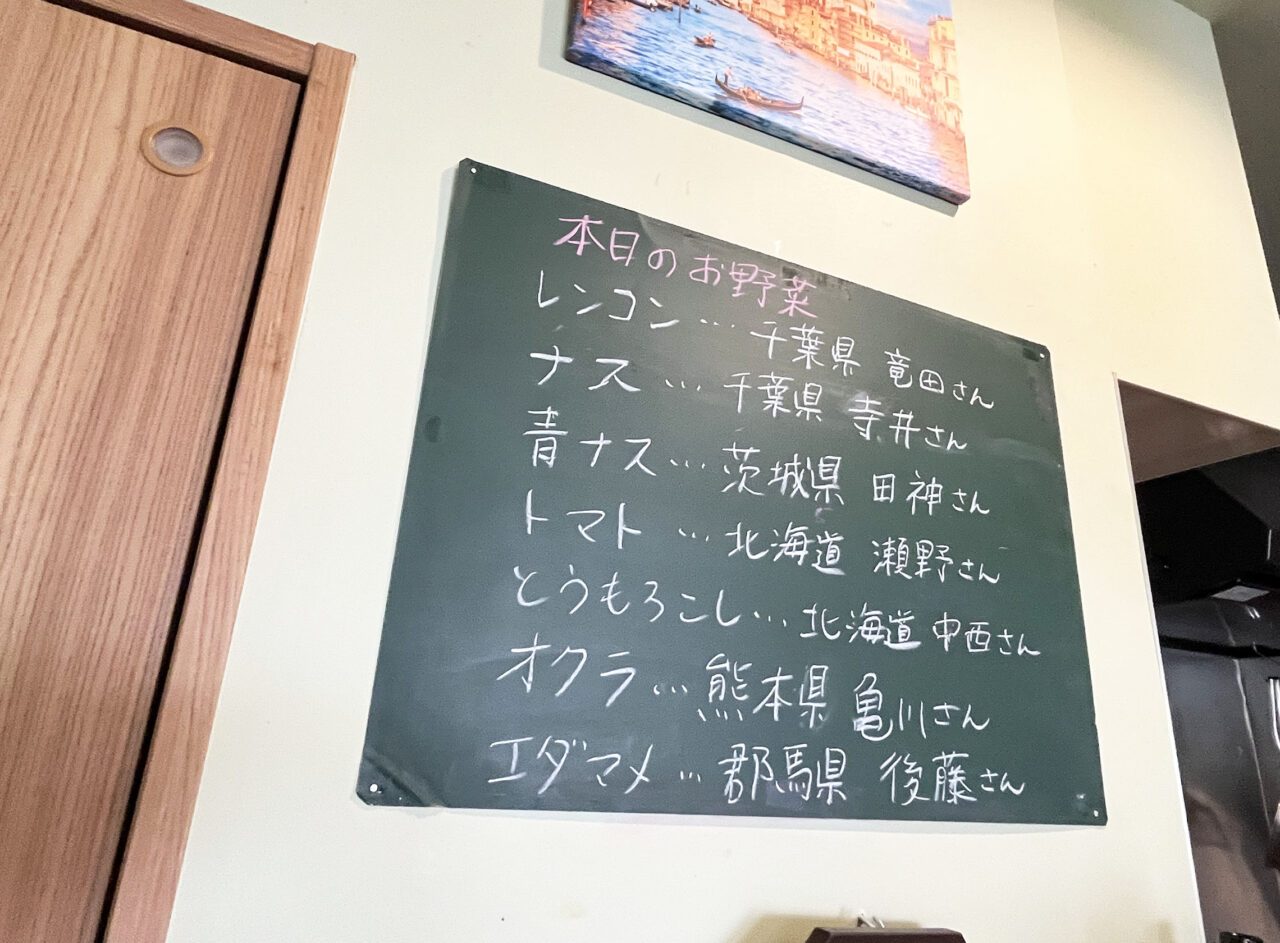 本日のお野菜
レンコン…千葉県 竜田さん
ナス…千葉県 寺井さん
青ナス…茨城県 田神さん
トマト…北海道 瀬野さん
とうもろこし…北海道 中西さん
オクラ…熊本県 亀川さん
エダマメ…郡馬県 後藤さん